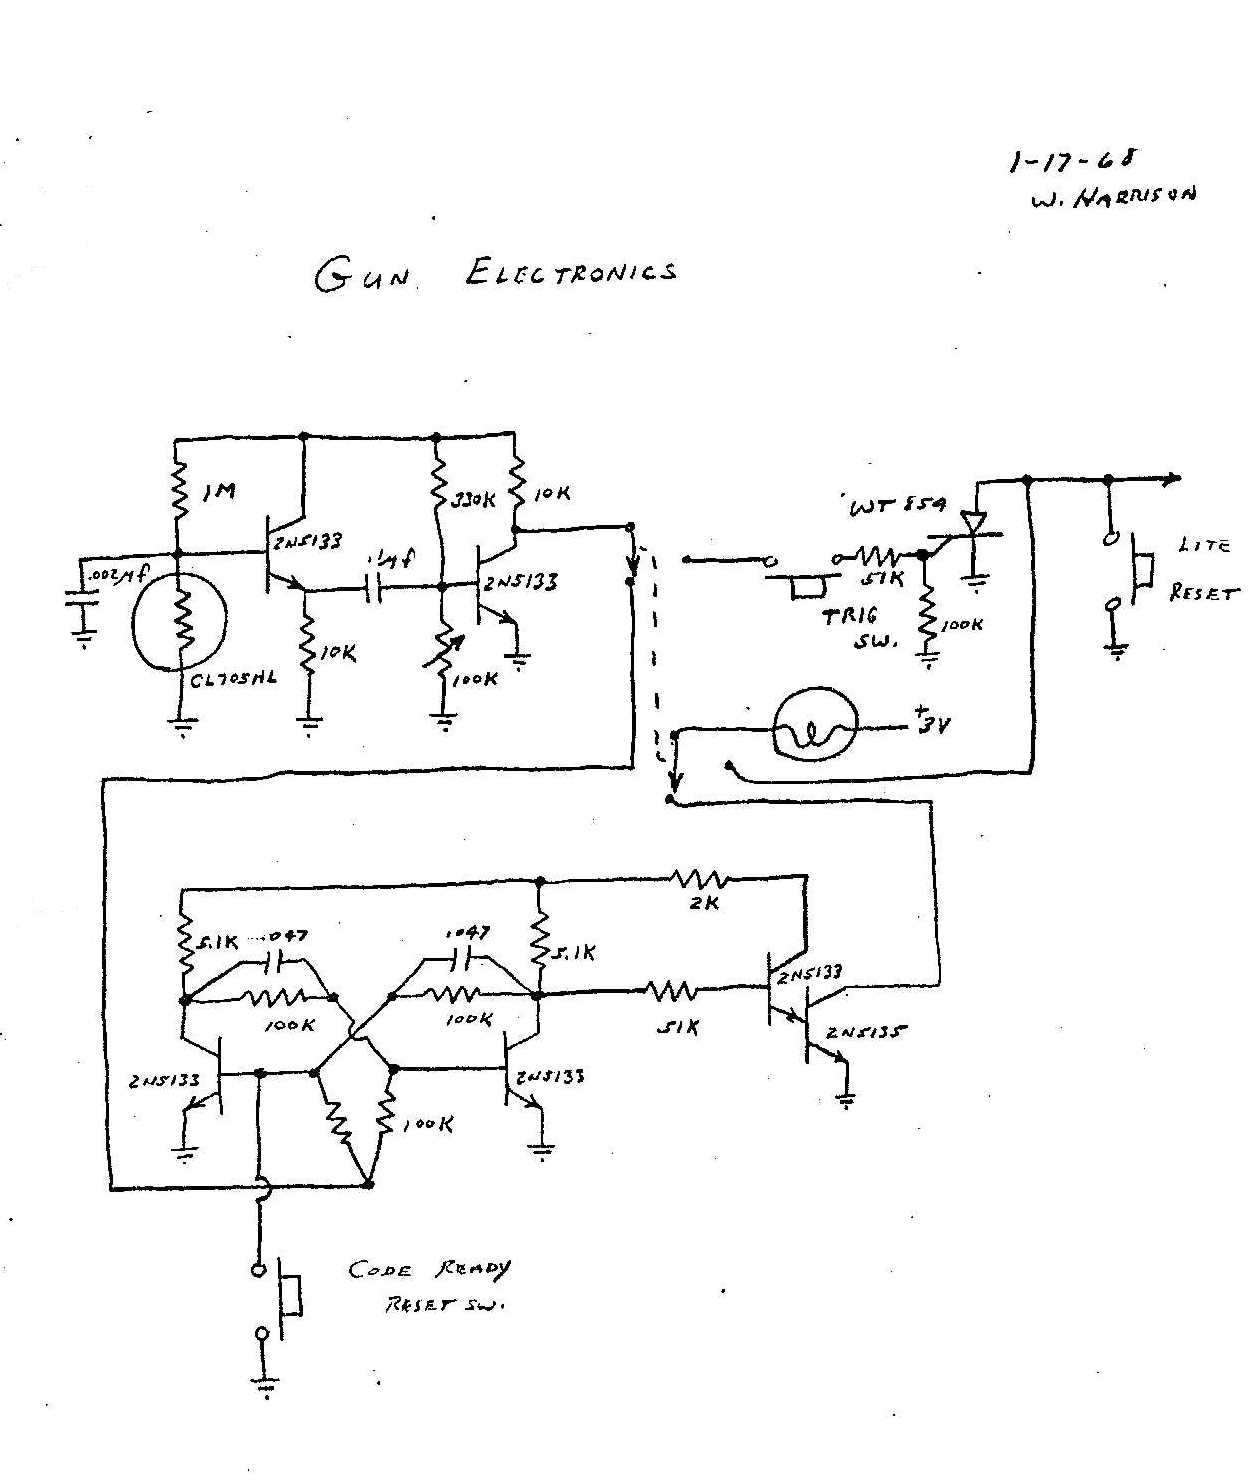 1-17-68
W. HARRISON
GUN ELECTRONICS
1M
330K
10K
2N5133
.002µf
.1µf
2N5133
10K
CL705HL
100K
WT 859
51K
TRIG
SW.
100K
LITE
RESET
+
3V
2K
5.1K
.047
.047
5.1K
100K
100K
51K
2N5133
2N5135
2N5133
2N5133
100K
CODE READY
RESET SW.